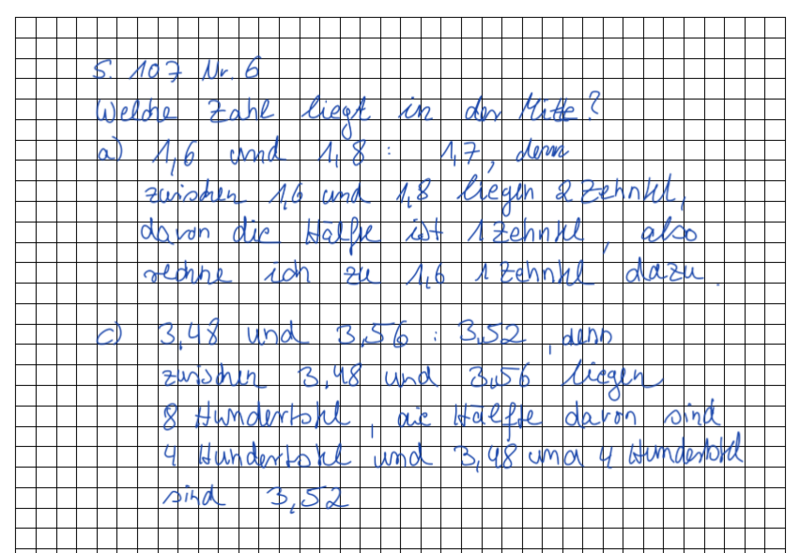 S. 107 Nr. 6
Welche Zahl liegt in der Mitte?
a) 1,6 und 1,8 : 1,7, denn
zwischen 1,6 und 1,8 liegen 2 Zehntel,
davon die Hälfte ist 1 Zehntel, also
rechne ich zu 1,6 1 Zehntel dazu.
c) 3,48 und 3,56 : 3,52, denn
zwischen 3,48 und 3,56 liegen
8 Hundertstel, die Hälfte davon sind
4 Hundertstel und 3,48 und 4 Hundertstel
sind 3,52